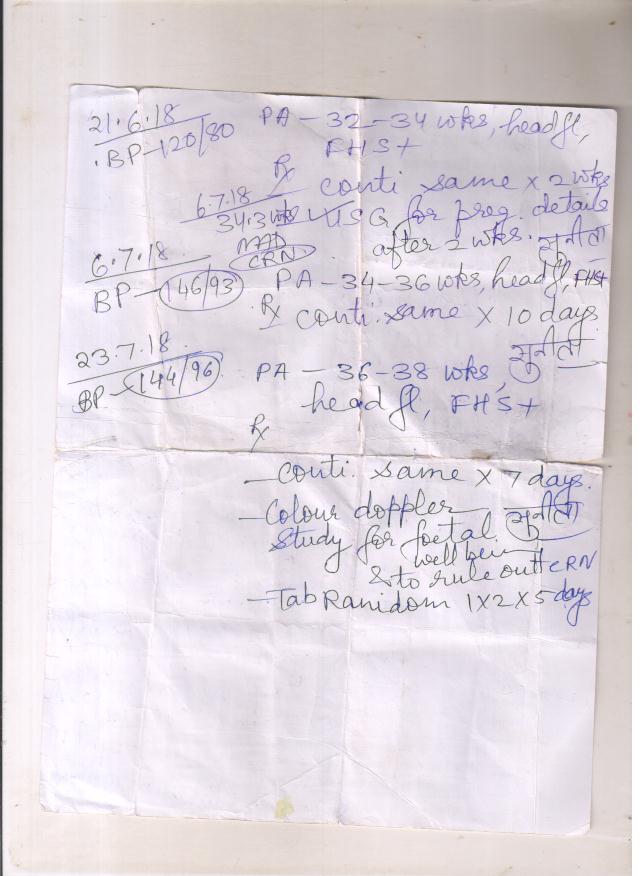 21.6.18 PA - 32-34 wks, head fl,
BP-120/80 FHS+
Rx conti same x 2 wks
6.7.18 USG for preg. details
34.3 wks after 2 wks. सुनीता
CRN
6.7.18 PA - 34-36 wks, head fl, FHS+
BP - 146/93
Rx conti. same x 10 days
सुनीता
23.7.18
BP - 144/96 PA - 36-38 wks,
head fl, FHS+
Rx
- conti. same x 7 days.
- Colour doppler सुनीता
study for foetal
well being
& to rule out CRN
- Tab Ranidom 1x2x5 days